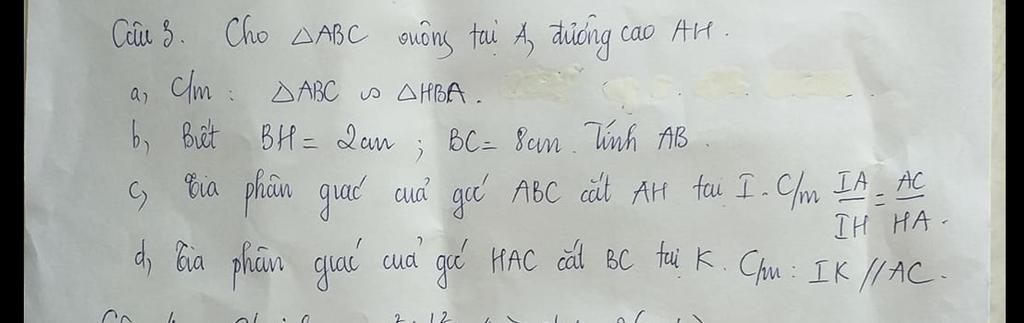 Câu 3. Cho △ABC vuông tại A, đường cao AH.
a, C/m : △ABC ∽ △HBA.
b, Biết BH = 2cm ; BC = 8cm. Tính AB.
c, Tia phân giác của góc ABC cắt AH tại I. C/m IA/IH = AC/HA.
d, Tia phân giác của góc HAC cắt BC tại K. C/m : IK // AC.